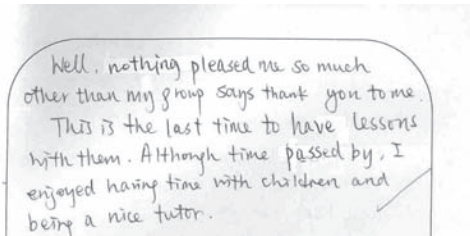 Well, nothing pleased me so much
other than my group says thank you to me.
This is the last time to have lessons
with them. Although time passed by, I
enjoyed having time with children and
being a nice tutor.